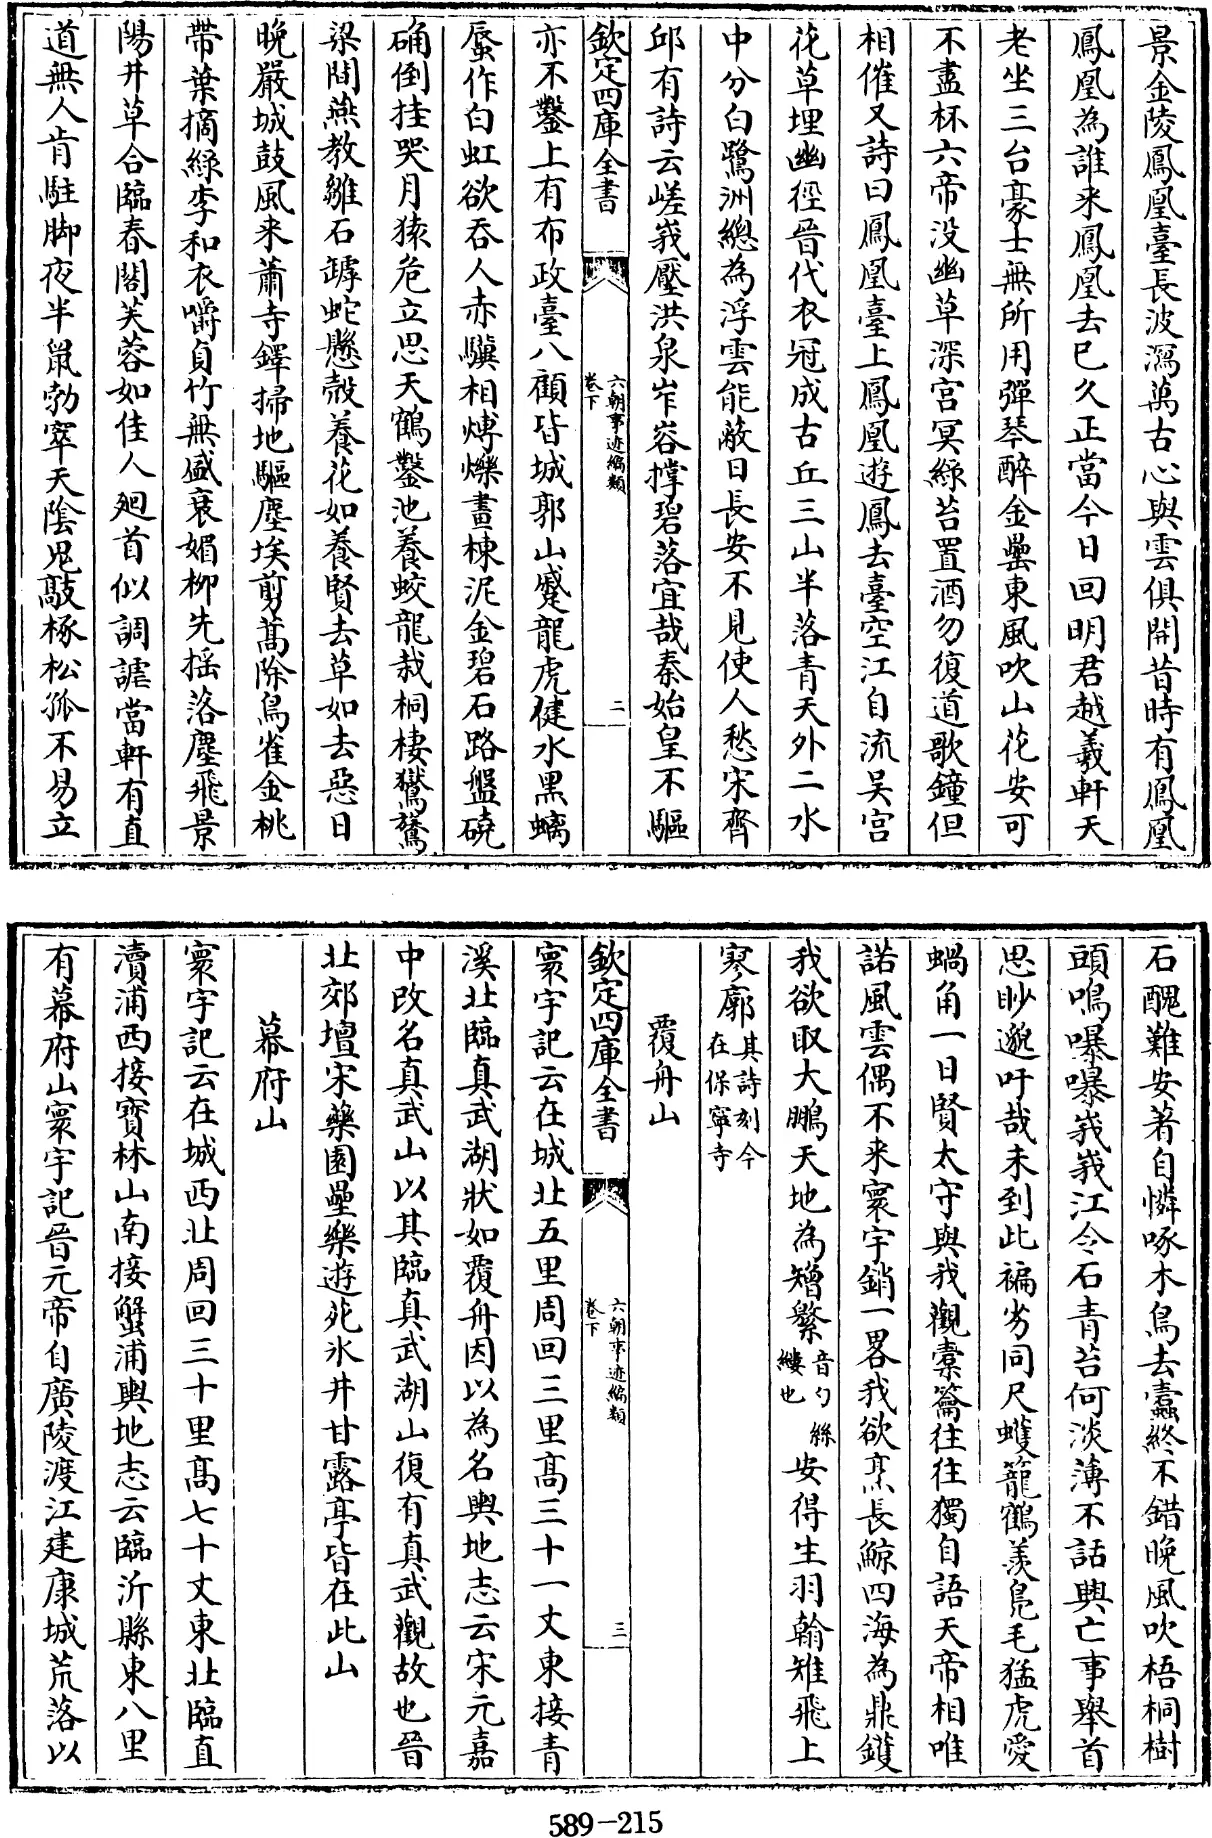 景金陵鳳凰臺長波瀉萬古心與雲俱開昔時有鳳凰
鳳凰為誰来鳳凰去已久正當今日回明君越羲軒天
老坐三台豪士無所用彈琴醉金罍東風吹山花安可
不盡杯六帝没幽草深宫冥綠苔置酒勿復道歌鐘但
相催又詩曰鳳凰臺上鳳凰遊鳳去臺空江自流吴宫
花草埋幽徑晉代衣冠成古丘三山半落青天外二水
中分白鷺洲總為浮雲能蔽日長安不見使人愁宋齊
邱有詩云嵯峩壓洪泉岝峉撑碧落宜哉秦始皇不驅
欽定四庫全書
六朝事迹編類
卷下
二
亦不鑿上有布政臺八顧皆城郭山蹙龍虎健水黑螭
蜃作白虹欲吞人赤驥相煿爍畫棟泥金碧石路盤磽
确倒挂哭月猿危立思天鶴鑿池養蛟龍栽桐棲鸑鷟
梁間燕教雛石罅蛇懸殻養花如養賢去草如去惡日
晩嚴城鼓風来蕭寺鐸掃地驅塵埃剪蒿除鳥雀金桃
帶葉摘綠李和衣嚼貞竹無盛衰媚柳先揺落塵飛景
陽井草合臨春閣芙蓉如佳人廻首似調謔當軒有直
道無人肯駐脚夜半鼠勃窣天隂鬼敲椓松孤不易立
石醜難安著自憐啄木鳥去蠧終不錯晚風吹梧桐樹
頭鳴嚗嚗峩峩江令石青苔何淡薄不話興亡事舉首
思眇邈吁哉未到此褊劣同尺蠖籠鶴羨鳬毛猛虎愛
蝸角一日賢太守與我觀槖籥往往獨自語天帝相唯
諾風雲偶不来寰宇銷一畧我欲烹長鯨四海為鼎鑊
我欲取大鵬天地為矰繁音勺絲縷也安得生羽翰雉飛上
寥廓其詩刻今在保寧寺
覆舟山
欽定四庫全書
六朝事迹編類
卷下
三
寰宇記云在城北五里周回三里髙三十一丈東接青
溪北臨真武湖狀如覆舟因以為名輿地志云宋元嘉
中改名真武山以其臨真武湖山復有真武觀故也晉
北郊壇宋藥園壘樂遊苑氷井甘露亭皆在此山
幕府山
寰宇記云在城西北周回三十里髙七十丈東北臨直
瀆浦西接寳林山南接蟹浦輿地志云臨沂縣東八里
有幕府山寰宇記晉元帝自廣陵渡江建康城荒落以
589-215